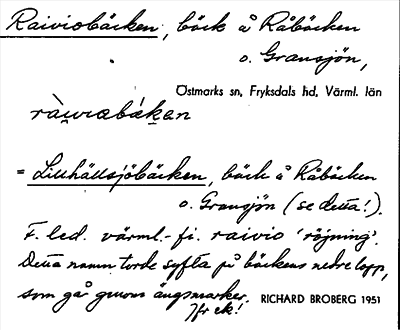 Raiviobäcken, bäck å Råbäcken
o. Gransjön,
Östmarks sn, Fryksdals hd, Värml. län
= Lillhällsjöbäcken, bäck å Råbäcken
o. Gransjön (se detta!).
F. led. värml.-fi. raivio 'röjning'.
Detta namn torde syfta på bäckens nedre lopp,
som går genom ängsmarker.
Jfr ek!
RICHARD BROBERG 1951